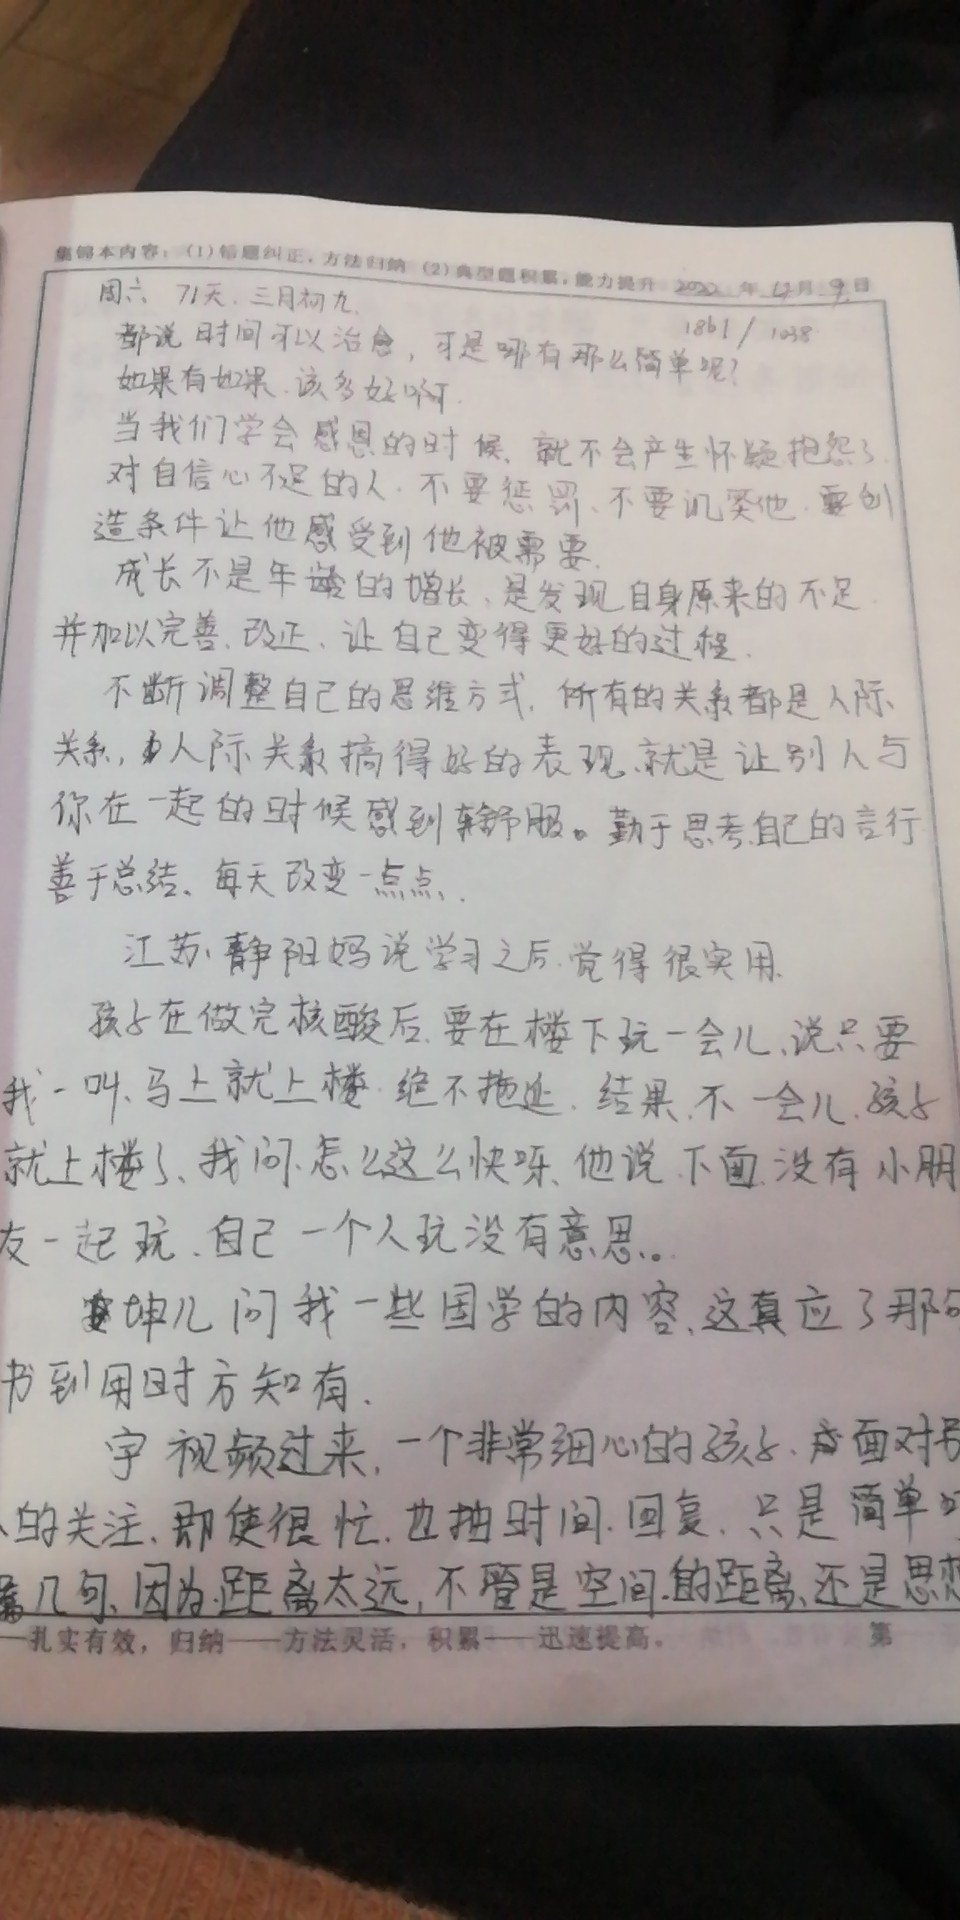 集锦本内容：（1）错题纠正，方法归纳（2）典型题积累，能力提升 2022 年 12月 9日
周六 71天.三月初九. 1861 / 1038
都说时间可以治愈，可是哪有那么简单呢？
如果有如果.该多好啊.
当我们学会感恩的时候、就不会产生怀疑抱怨了.
对自信心不足的人.不要惩罚、不要讥笑他.要创
造条件让他感受到他被需要.
成长不是年龄的增长、是发现自身原来的不足.
并加以完善.改正、让自己变得更好的过程.
不断调整自己的思维方式.所有的关系都是人际
关系,人际关系搞得好的表现、就是让别人与
你在一起的时候感到舒服。勤于思考.自己的言行
善于总结、每天改变一点点.
江苏.静阳妈说学习之后.觉得很实用.
孩子在做完核酸后.要在楼下玩一会儿、说只要
我一叫、马上就上楼.绝不拖延.结果、不一会儿.孩子
就上楼了、我问.怎么这么快呀、他说.下面没有小朋
友一起玩、自己一个人玩没有意思。
坤儿问我一些国学的内容、这真应了那句
书到用时方知有.
宇视频过来,一个非常细心的孩子.面对
的关注、即使很忙.也抽时间.回复.只是简单
几句、因为.距离太远,不管是空间.的距离、还是思想
扎实有效，归纳——方法灵活，积累——迅速提高。 第